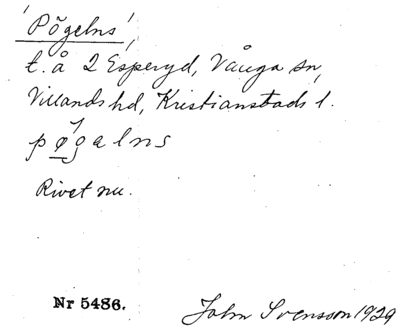 'Pögelns',
t. å 2 Esperyd, Vånga sn,
Villands hd, Kristianstads l.
pøgalns
Rivet nu.
Nr 5486.
John Svensson 1929